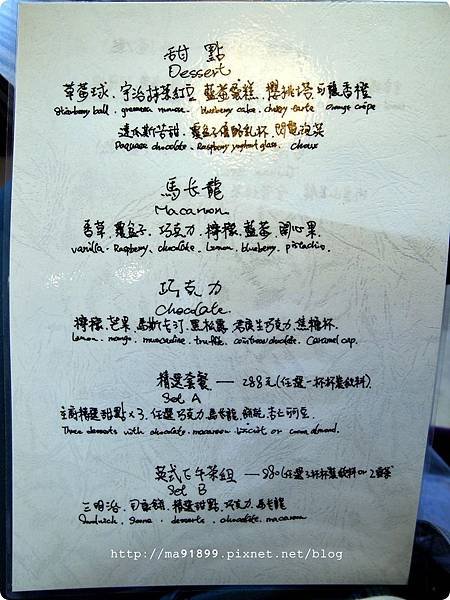 甜 點
Dessert
草莓球、宇治抹茶紅豆 藍莓蛋糕、櫻桃塔 可麗香橙
Strawberry ball . greentea mousse. blueberry cake. cherry tarte orange crêpe
達瓦斯苦甜、覆盆子優酪乳杯、閃電泡芙
Daquoise chocolate . Raspberry yoghurt glass. choux
馬卡龍
Macaroon
香草、覆盆子、巧克力、檸檬、藍莓、開心果
vanilla . Raspberry, chocolate . Lemon. blueberry. pistachio
巧克力
Chocolate
檸檬、芒果、馬斯卡汀、黑松露、君度生巧克力、焦糖杯
Lemon . mango. muscadine. truffle. cointreau chocolate. Caramel cup.
精選套餐 — 288元(任選一杯杯裝飲料).
Set A
主廚精選甜點×3、任選巧克力、馬卡龍、餅乾、杏仁可豆
Three desserts with chocolate. macaroon biscuit or almond.
英式下午茶組 — 980(任選2杯杯裝飲料or 2壺茶
Set B
三明治、司康餅、精選甜點、巧克力、馬卡龍
Sandwich . Scone . desserts . chocolate. macaroon
http://ma91899.pixnet.net/blog